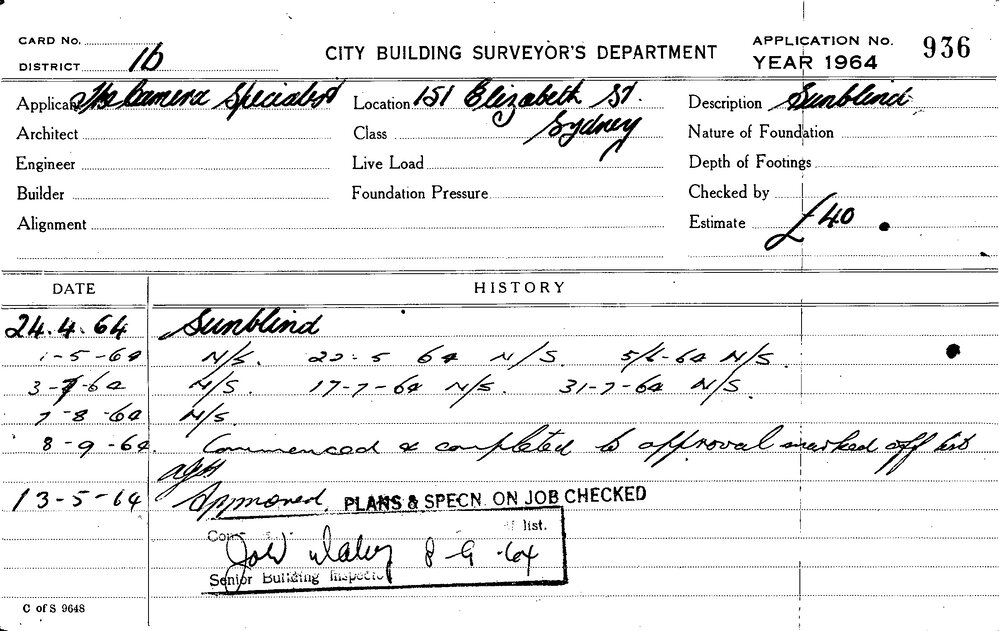 CARD No.
DISTRICT 1b
CITY BUILDING SURVEYOR'S DEPARTMENT
APPLICATION No. 936
YEAR 1964
Applicant The Camera Specialist Location 151 Elizabeth St. Description Sunblind
Architect Class Sydney Nature of Foundation
Engineer Live Load Depth of Footings
Builder Foundation Pressure Checked by
Alignment Estimate £40
DATE HISTORY
24.4.64 Sunblind
1-5-64 N/S. 22-5 64 N/S. 5/6-64 N/S.
3-7-64 N/S. 17-7-64 N/S. 31-7-64 N/S.
7-8-64 N/S.
8-9-64 Commenced & completed to approval marked off list
13-5-64 Approved PLANS & SPECN. ON JOB CHECKED
list.
8-9-64
Senior Building Inspector
C of S 9648